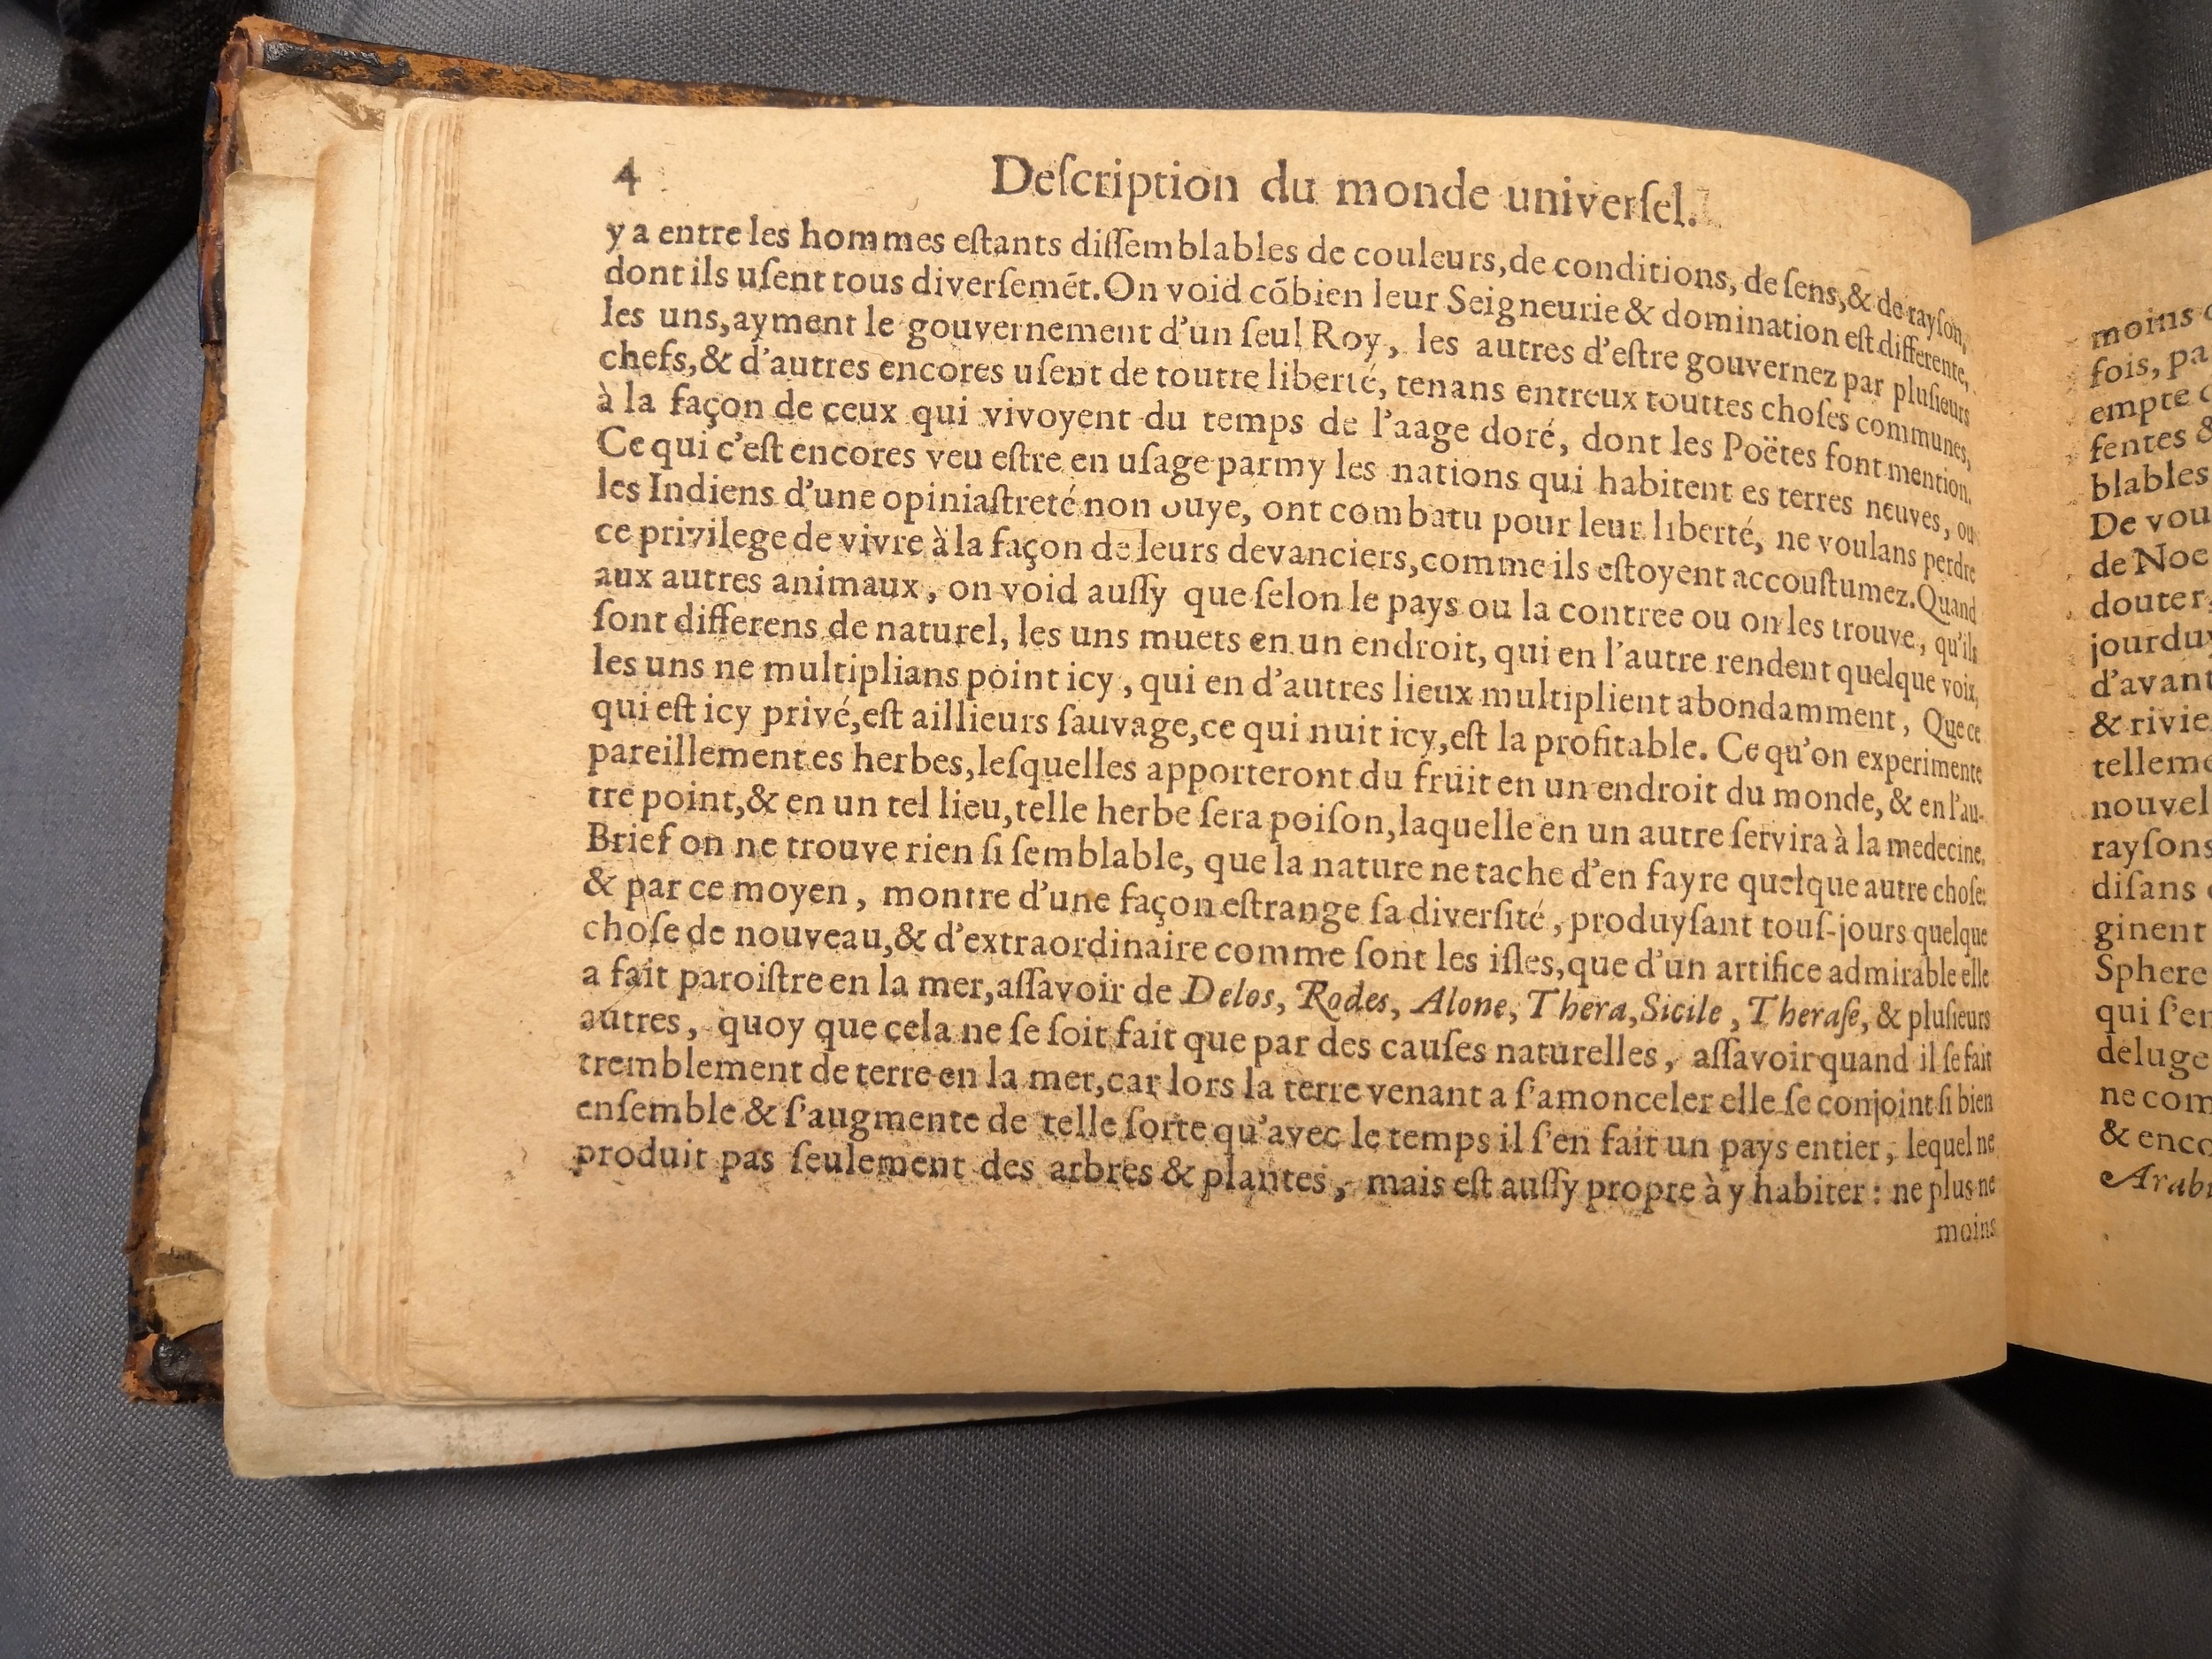 4 Deſcription du monde univerſel.
y a entre les hommes eſtants diſſemblables de couleurs, de conditions, de ſens, & de rayſon,
dont ils uſent tous diverſemēt. On void cōbien leur Seigneurie & domination eſt differente,
les uns, ayment le gouvernement d'un ſeul Roy, les autres d'eſtre gouvernez par pluſieurs
chefs, & d'autres encores uſent de toutre liberté, tenans entreux touttes choſes communes,
à la façon de ceux qui vivoyent du temps de l'aage doré, dont les Poëtes font mention.
Ce qui c'eſt encores veu eſtre en uſage parmy les nations qui habitent es terres neuves, ou
les Indiens d'une opiniaſtreté non ouye, ont combatu pour leur liberté, ne voulans perdre
ce privilege de vivre à la façon de leurs devanciers, comme ils eſtoyent accouſtumez. Quand
aux autres animaux, on void auſſy que ſelon le pays ou la contree ou on les trouve, qu'ils
ſont differens de naturel, les uns muets en un endroit, qui en l'autre rendent quelque voix,
les uns ne multiplians point icy, qui en d'autres lieux multiplient abondamment, Que ce
qui eſt icy privé, eſt aillieurs ſauvage, ce qui nuit icy, eſt la profitable. Ce qu'on experimente
pareillement es herbes, leſquelles apporteront du fruit en un endroit du monde, & en l'au-
tre point, & en un tel lieu, telle herbe ſera poiſon, laquelle en un autre ſervira à la medecine.
Brief on ne trouve rien ſi ſemblable, que la nature ne tache d'en fayre quelque autre choſe:
& par ce moyen, montre d'une façon eſtrange ſa diverſité, produyſant touſ-jours quelque
choſe de nouveau, & d'extraordinaire comme ſont les iſles, que d'un artifice admirable elle
a fait paroiſtre en la mer, aſſavoir de Delos, Rodes, Alone, Thera, Sicile, Theraſe, & pluſieurs
autres, quoy que cela ne ſe ſoit fait que par des cauſes naturelles, aſſavoir quand il ſe fait
tremblement de terre en la mer, car lors la terre venant a ſ'amonceler elle ſe conjoint ſi bien
enſemble & ſ'augmente de telle ſorte qu'avec le temps il ſ'en fait un pays entier, lequel ne
produit pas ſeulement des arbres & plantes, mais eſt auſſy propre à y habiter : ne plus ne
moins
moins
fois, pa
empte
fentes &
blables
De vou
de Noe
douter,
jourduy
d'avant
& rivie
telleme
nouvel
rayſons
diſans
ginent
Sphere
qui ſ'en
deluge
ne com
& enco
Arabi